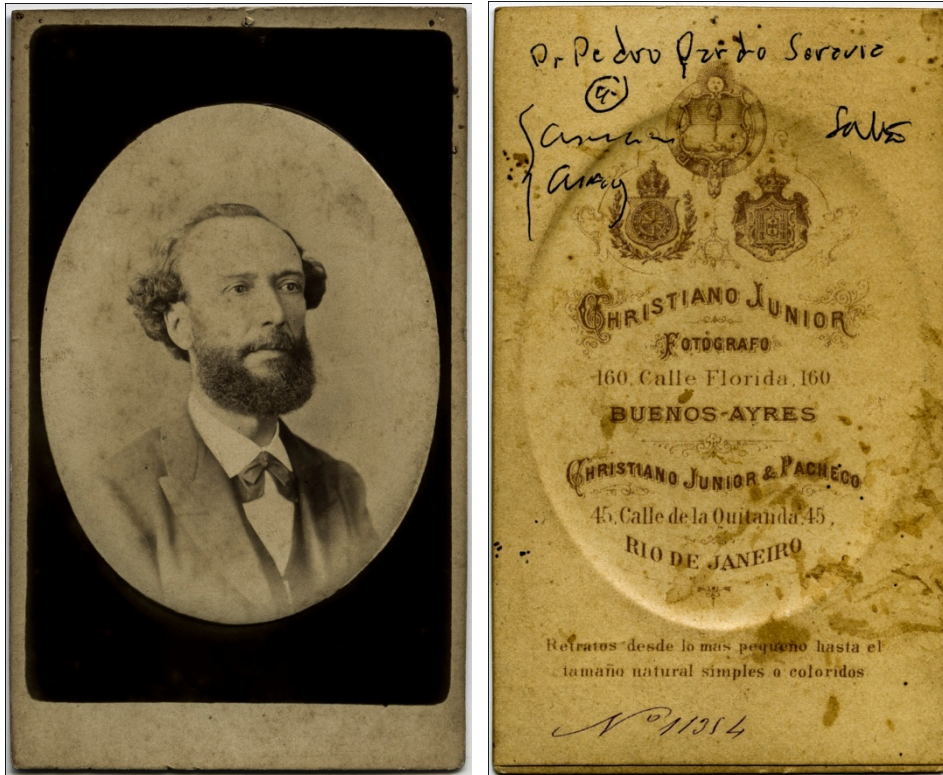 Dr Pedro Pardo Saravia
Salta
CHRISTIANO JUNIOR
FOTÓGRAFO
160, Calle Florida, 160
BUENOS-AYRES
CHRISTIANO JUNIOR & PACHECO
45, Calle de la Quitanda, 45,
RIO DE JANEIRO
Retratos desde lo mas pequeño hasta el
tamaño natural simples o coloridos
Nº 11354